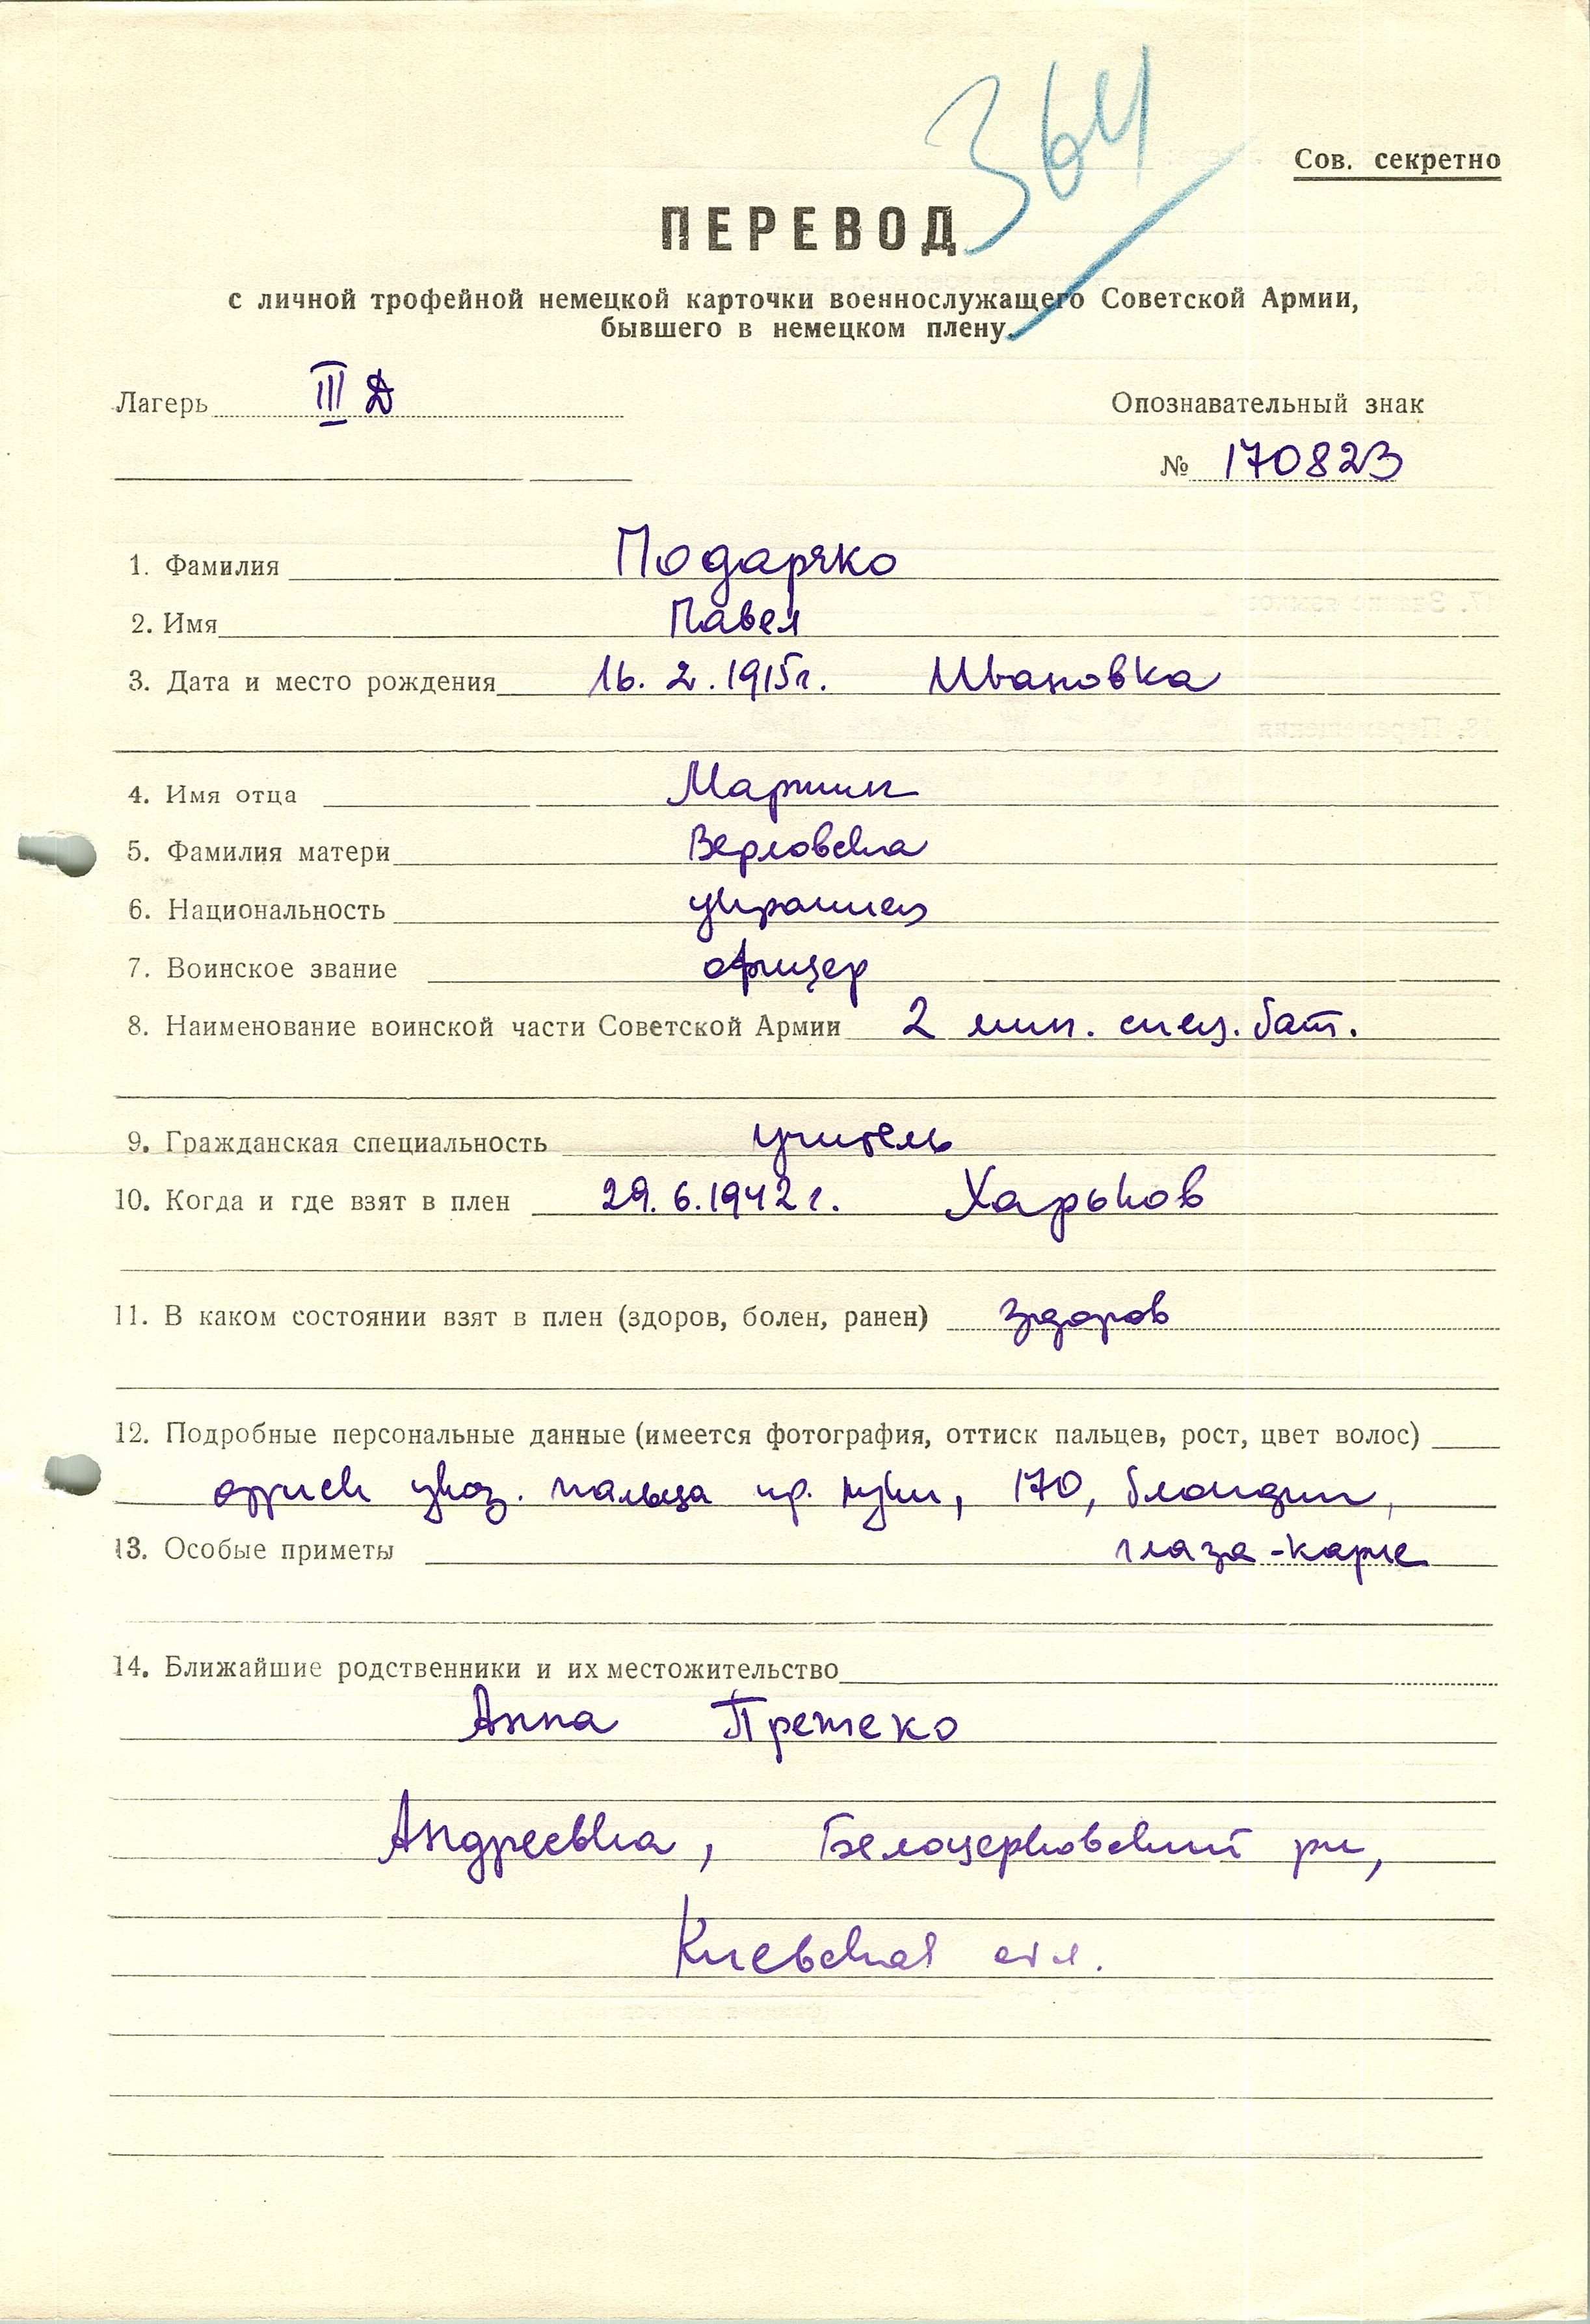 364
Сов. секретно
ПЕРЕВОД
с личной трофейной немецкой карточки военнослужащего Советской Армии,
бывшего в немецком плену.
Лагерь III Д Опознавательный знак
№ 170823
1. Фамилия Подаряко
2. Имя Павел
3. Дата и место рождения 16. 2. 1915г. Ивановка
4. Имя отца Мартин
5. Фамилия матери Верловска
6. Национальность украинец
7. Воинское звание офицер
8. Наименование воинской части Советской Армии 2 мин. спец. бат.
9. Гражданская специальность учитель
10. Когда и где взят в плен 29. 6. 1942 г. Харьков
11. В каком состоянии взят в плен (здоров, болен, ранен) здоров
12. Подробные персональные данные (имеется фотография, оттиск пальцев, рост, цвет волос)
оттиск указ. пальца пр. руки, 170, блондин,
13. Особые приметы глаза - карие
14. Ближайшие родственники и их местожительство
Анна
Андреевка, Белоцерковский рн,
Киевская обл.